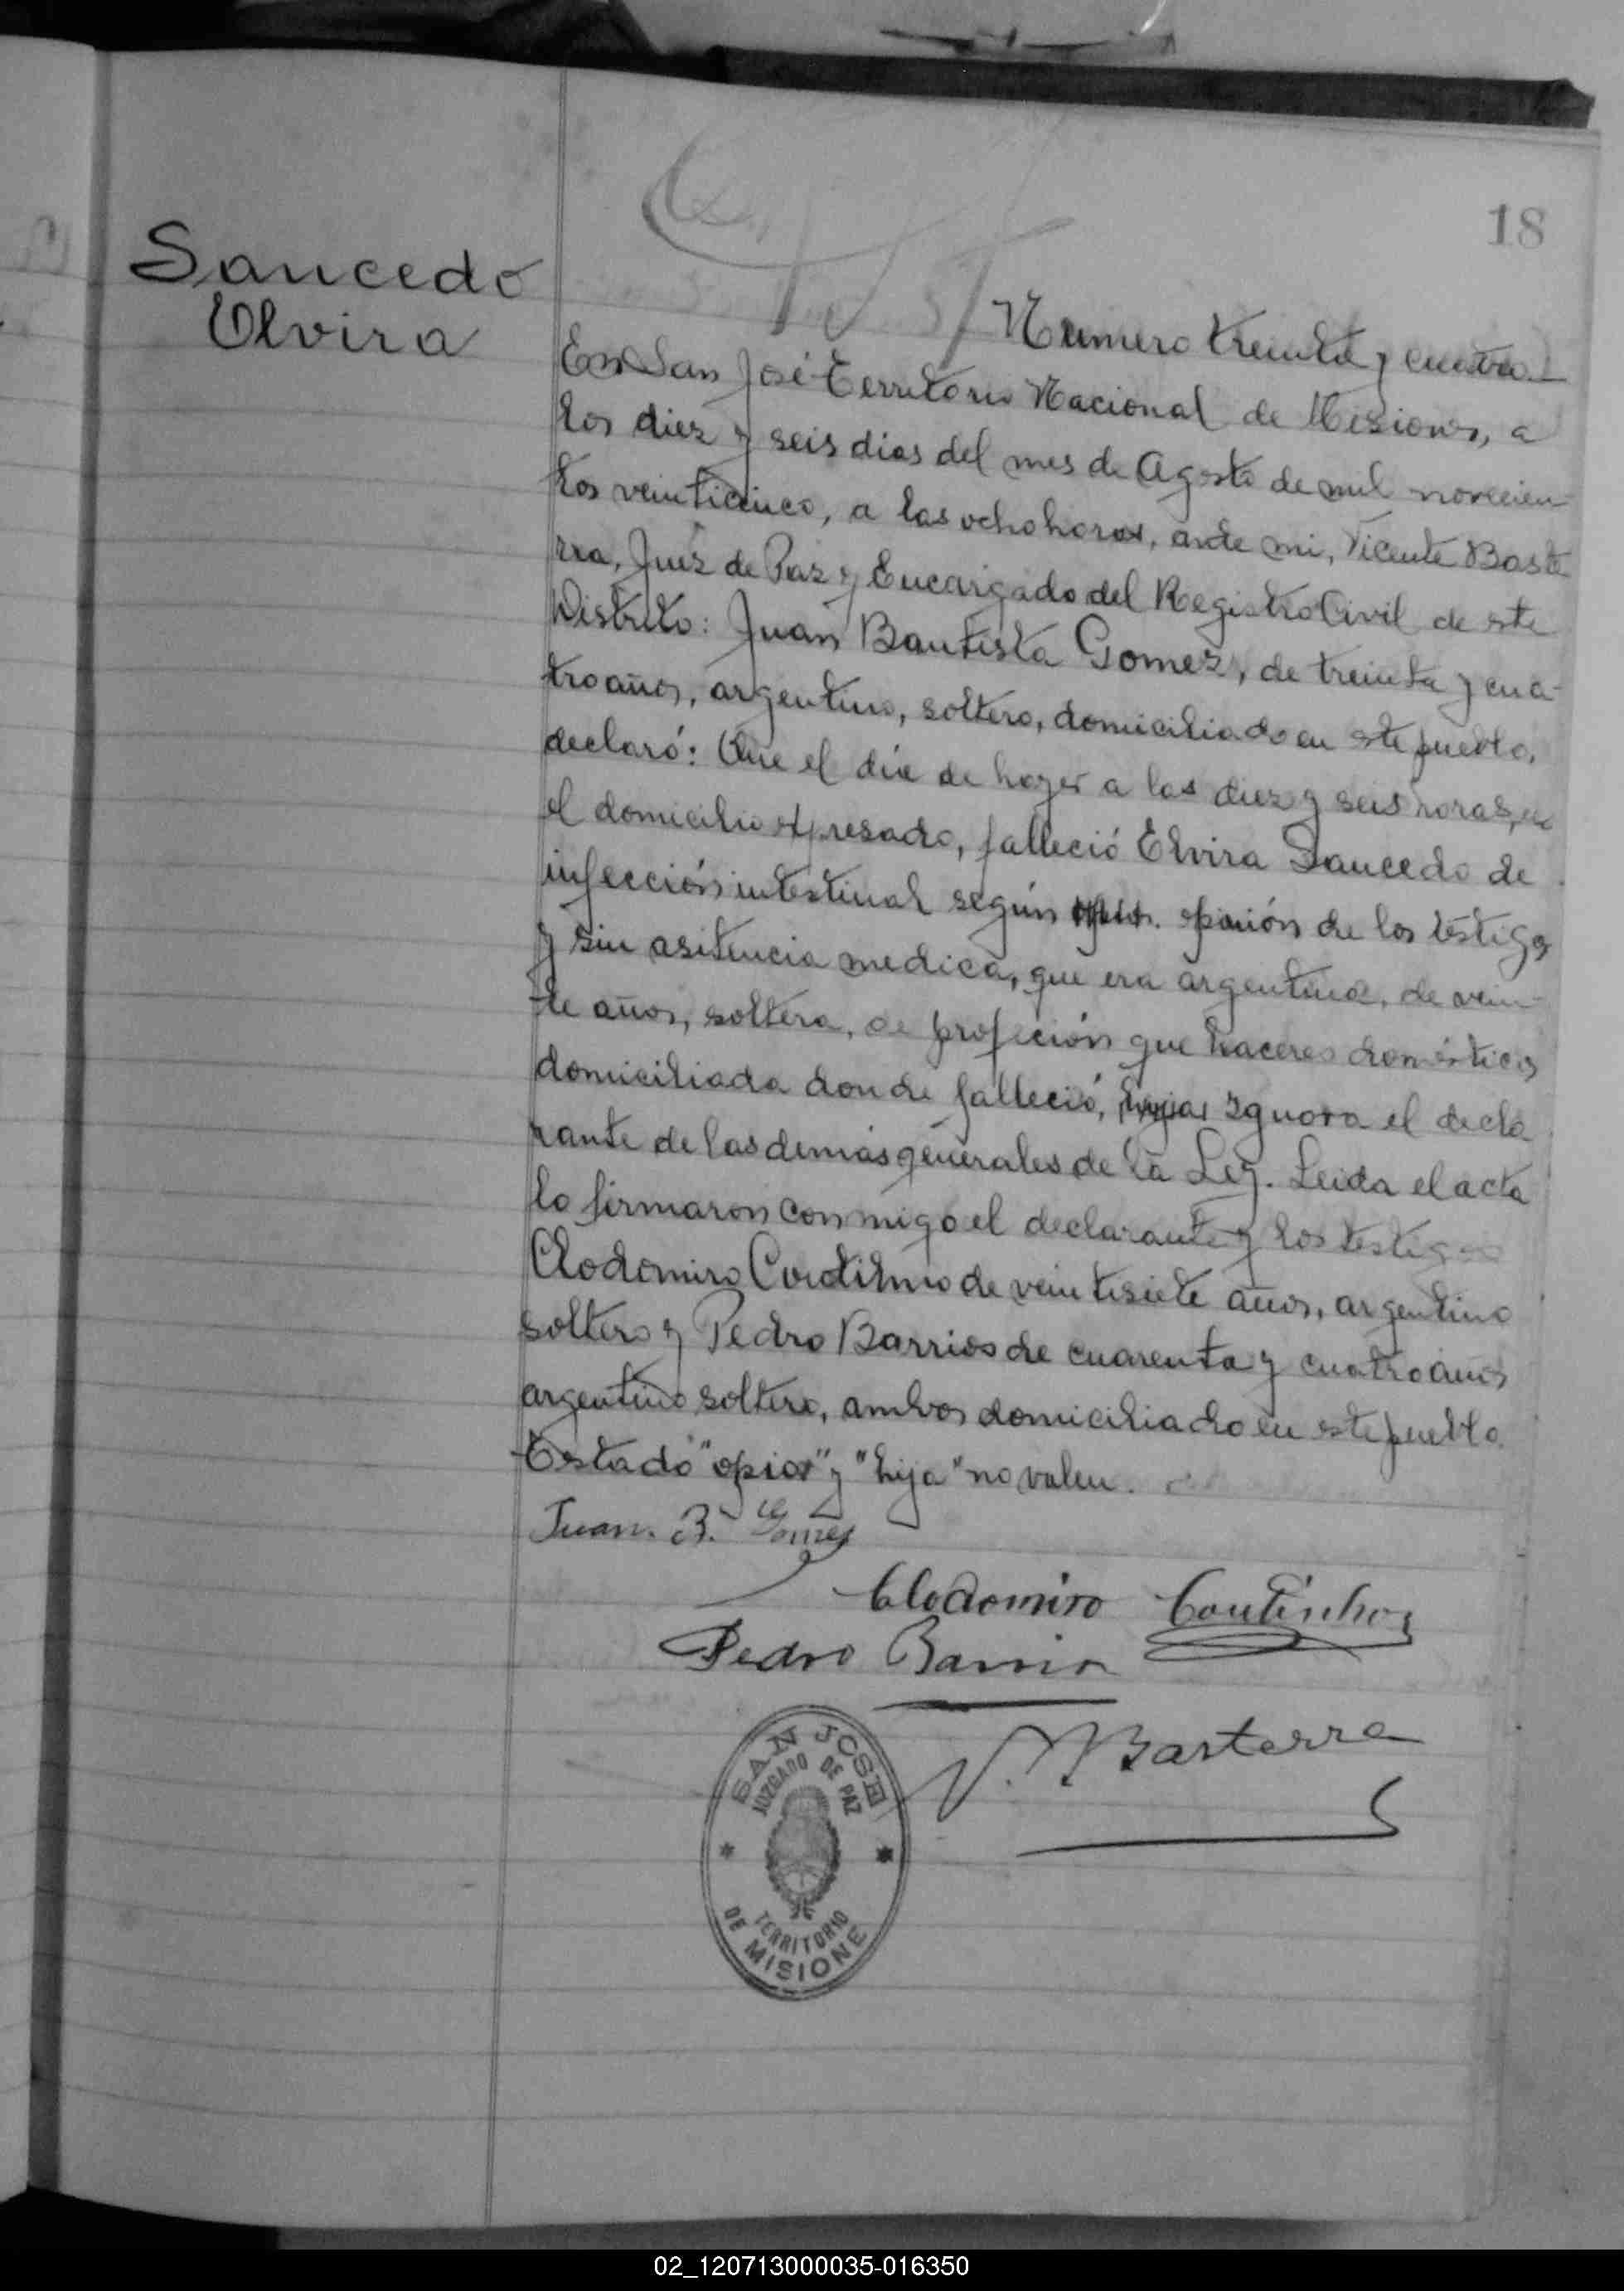 18
Saucedo
Elvira
Numero treinta y cuatro.
En San José Territorio Nacional de Misiones, a
los diez y seis dias del mes de Agosto de mil novecien-
tos veinticinco, a las ocho horas, ante mi, Vicente Baste-
rra, Juez de Paz y Encargado del Registro Civil de este
Distrito: Juan Bautista Gomez, de treinta y cua-
tro años, argentino, soltero, domiciliado en este pueblo,
declaró: Que el día de hoyer a las diez y seis horas, en
el domicilio expresado, falleció Elvira Saucedo de
infección intestinal según opinión de los testigos
y sin asitencia medica, que era argentina, de vein-
te años, soltera, de profeción que haceres domésticos
domiciliada donde falleció, ignora el decla
rante de las demás generales de la Ley. Leida el acta
lo firmaron conmigo el declarante y los testigos
Clodomiro de veintisiete años, argentino
soltero y Pedro Barrios de cuarenta y cuatro años
argentino soltero, ambos domiciliado en este pueblo.
Testado "opior" y "hija" no valen.
Juan. B. Gomez
Clodomiro Coutinho
Pedro Barrios
V. Basterra
SAN JOSE
JUZGADO DE PAZ
TERRITORIO
DE MISIONE
02_120713000035-016350